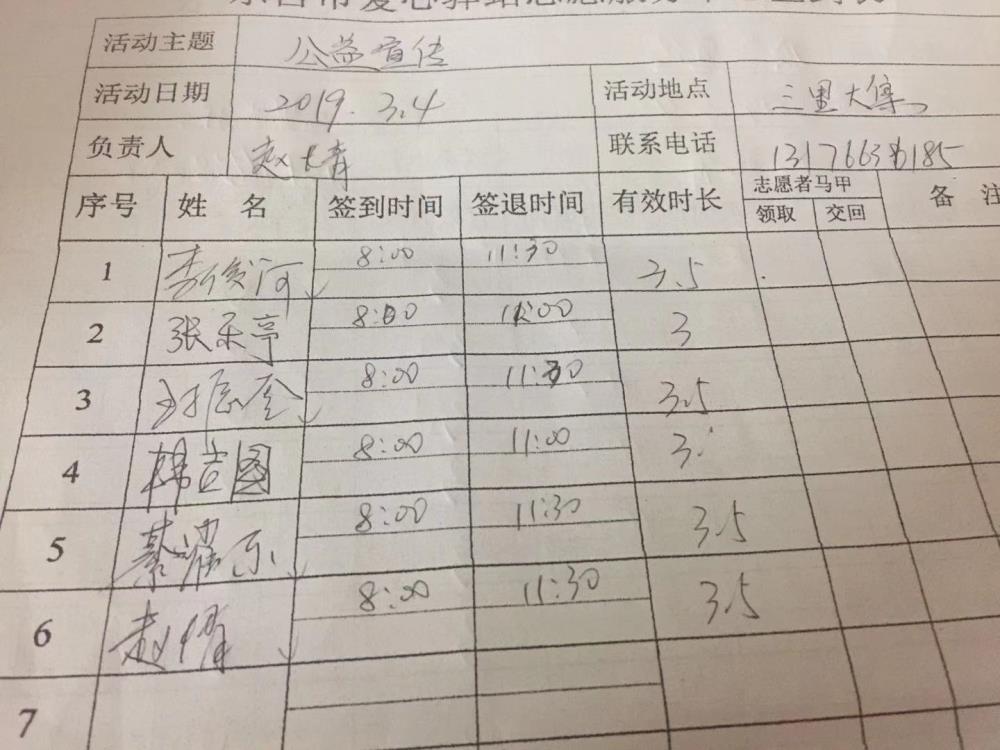 活动主题 公益宣传
活动日期 2019.3.4 活动地点 三里大
负责人 赵 青 联系电话
序号 姓 名 签到时间 签退时间 有效时长 志愿者马甲 备 注
领取 交回
1 李俊河 8:00 11:30 3.5
2 张乐亭 8:00 11:00 3
3 8:00 11:30 3.5
4 韩 国 8:00 11:00 3
5 綦耀东 8:00 11:30 3.5
6 赵耀 8:00 11:30 3.5
7